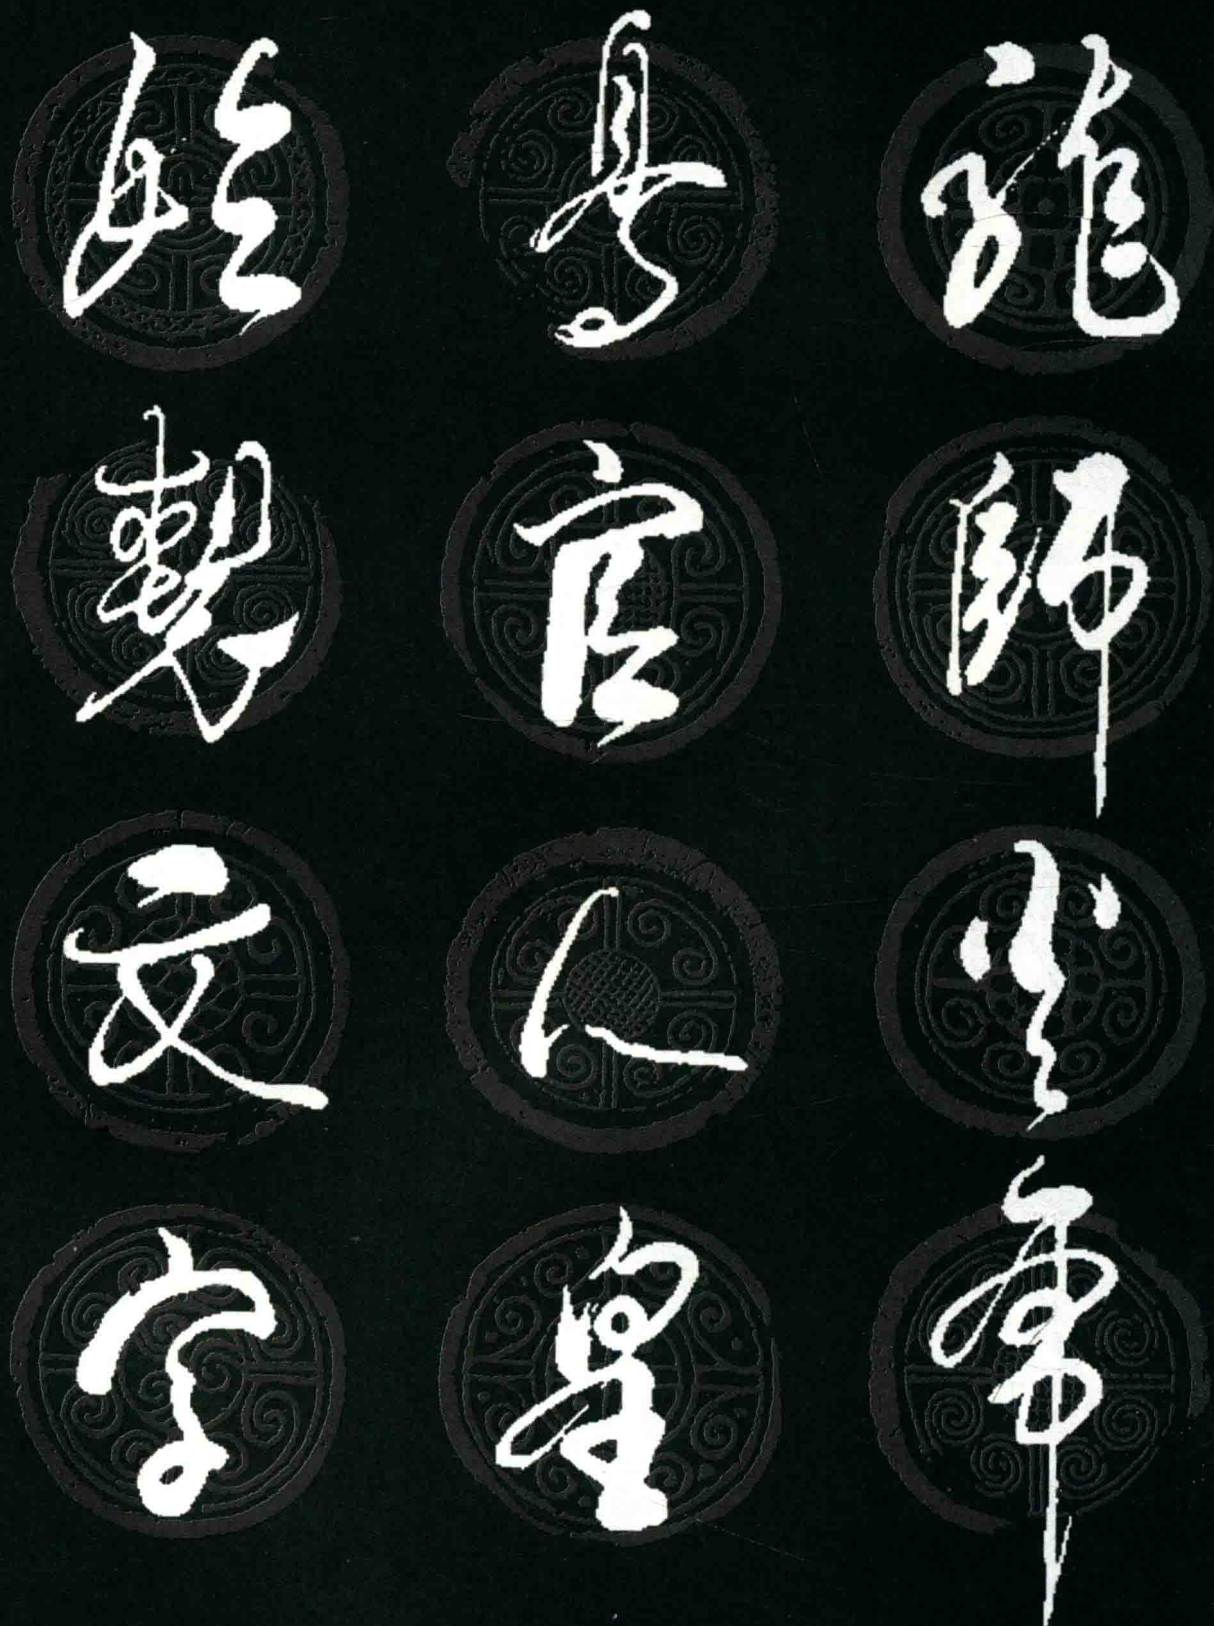 龍師火帝
鳥官人皇
始制文字